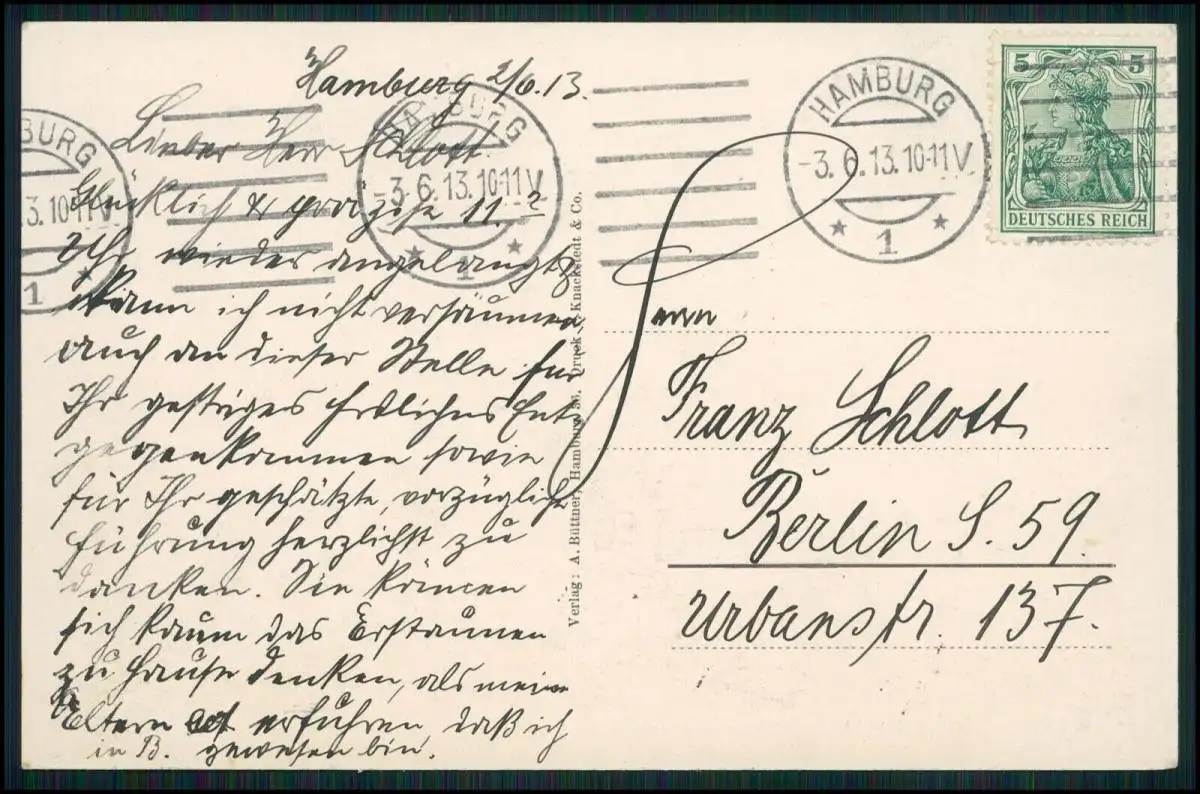 Hamburg 2/6.13.
Lieber Herr Schlott.
Glücklich & präzise 11.2
Uhr wieder angelangt,
kann ich nicht versäumen
auch an dieser Stelle für
Ihr gestriges freundliches Ent
gegenkommen sowie
für Ihr geschätzte, vorzügliche
Führung herzlichst zu
danken. Sie können
sich kaum das Erstaunen
zu Hause denken, als meine
Eltern erfuhren, daß ich
in B. gewesen bin.
Verlag: A. Büttner, Hamburg 36. Druck: Knackstedt & Co.
HAMBURG
-3.6.13.10-11V
* 1 *
HAMBURG
-3.6.13.10-11V.
* 1 *
BURG
3.10-11V
1 *
5 5
DEUTSCHES REICH
Herrn
Franz Schlott
Berlin S. 59.
Urbanstr. 137.